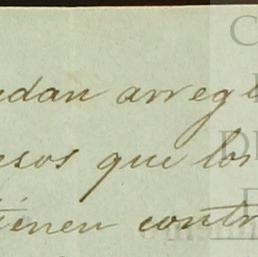 edan arregl
esos que los
tienen contr